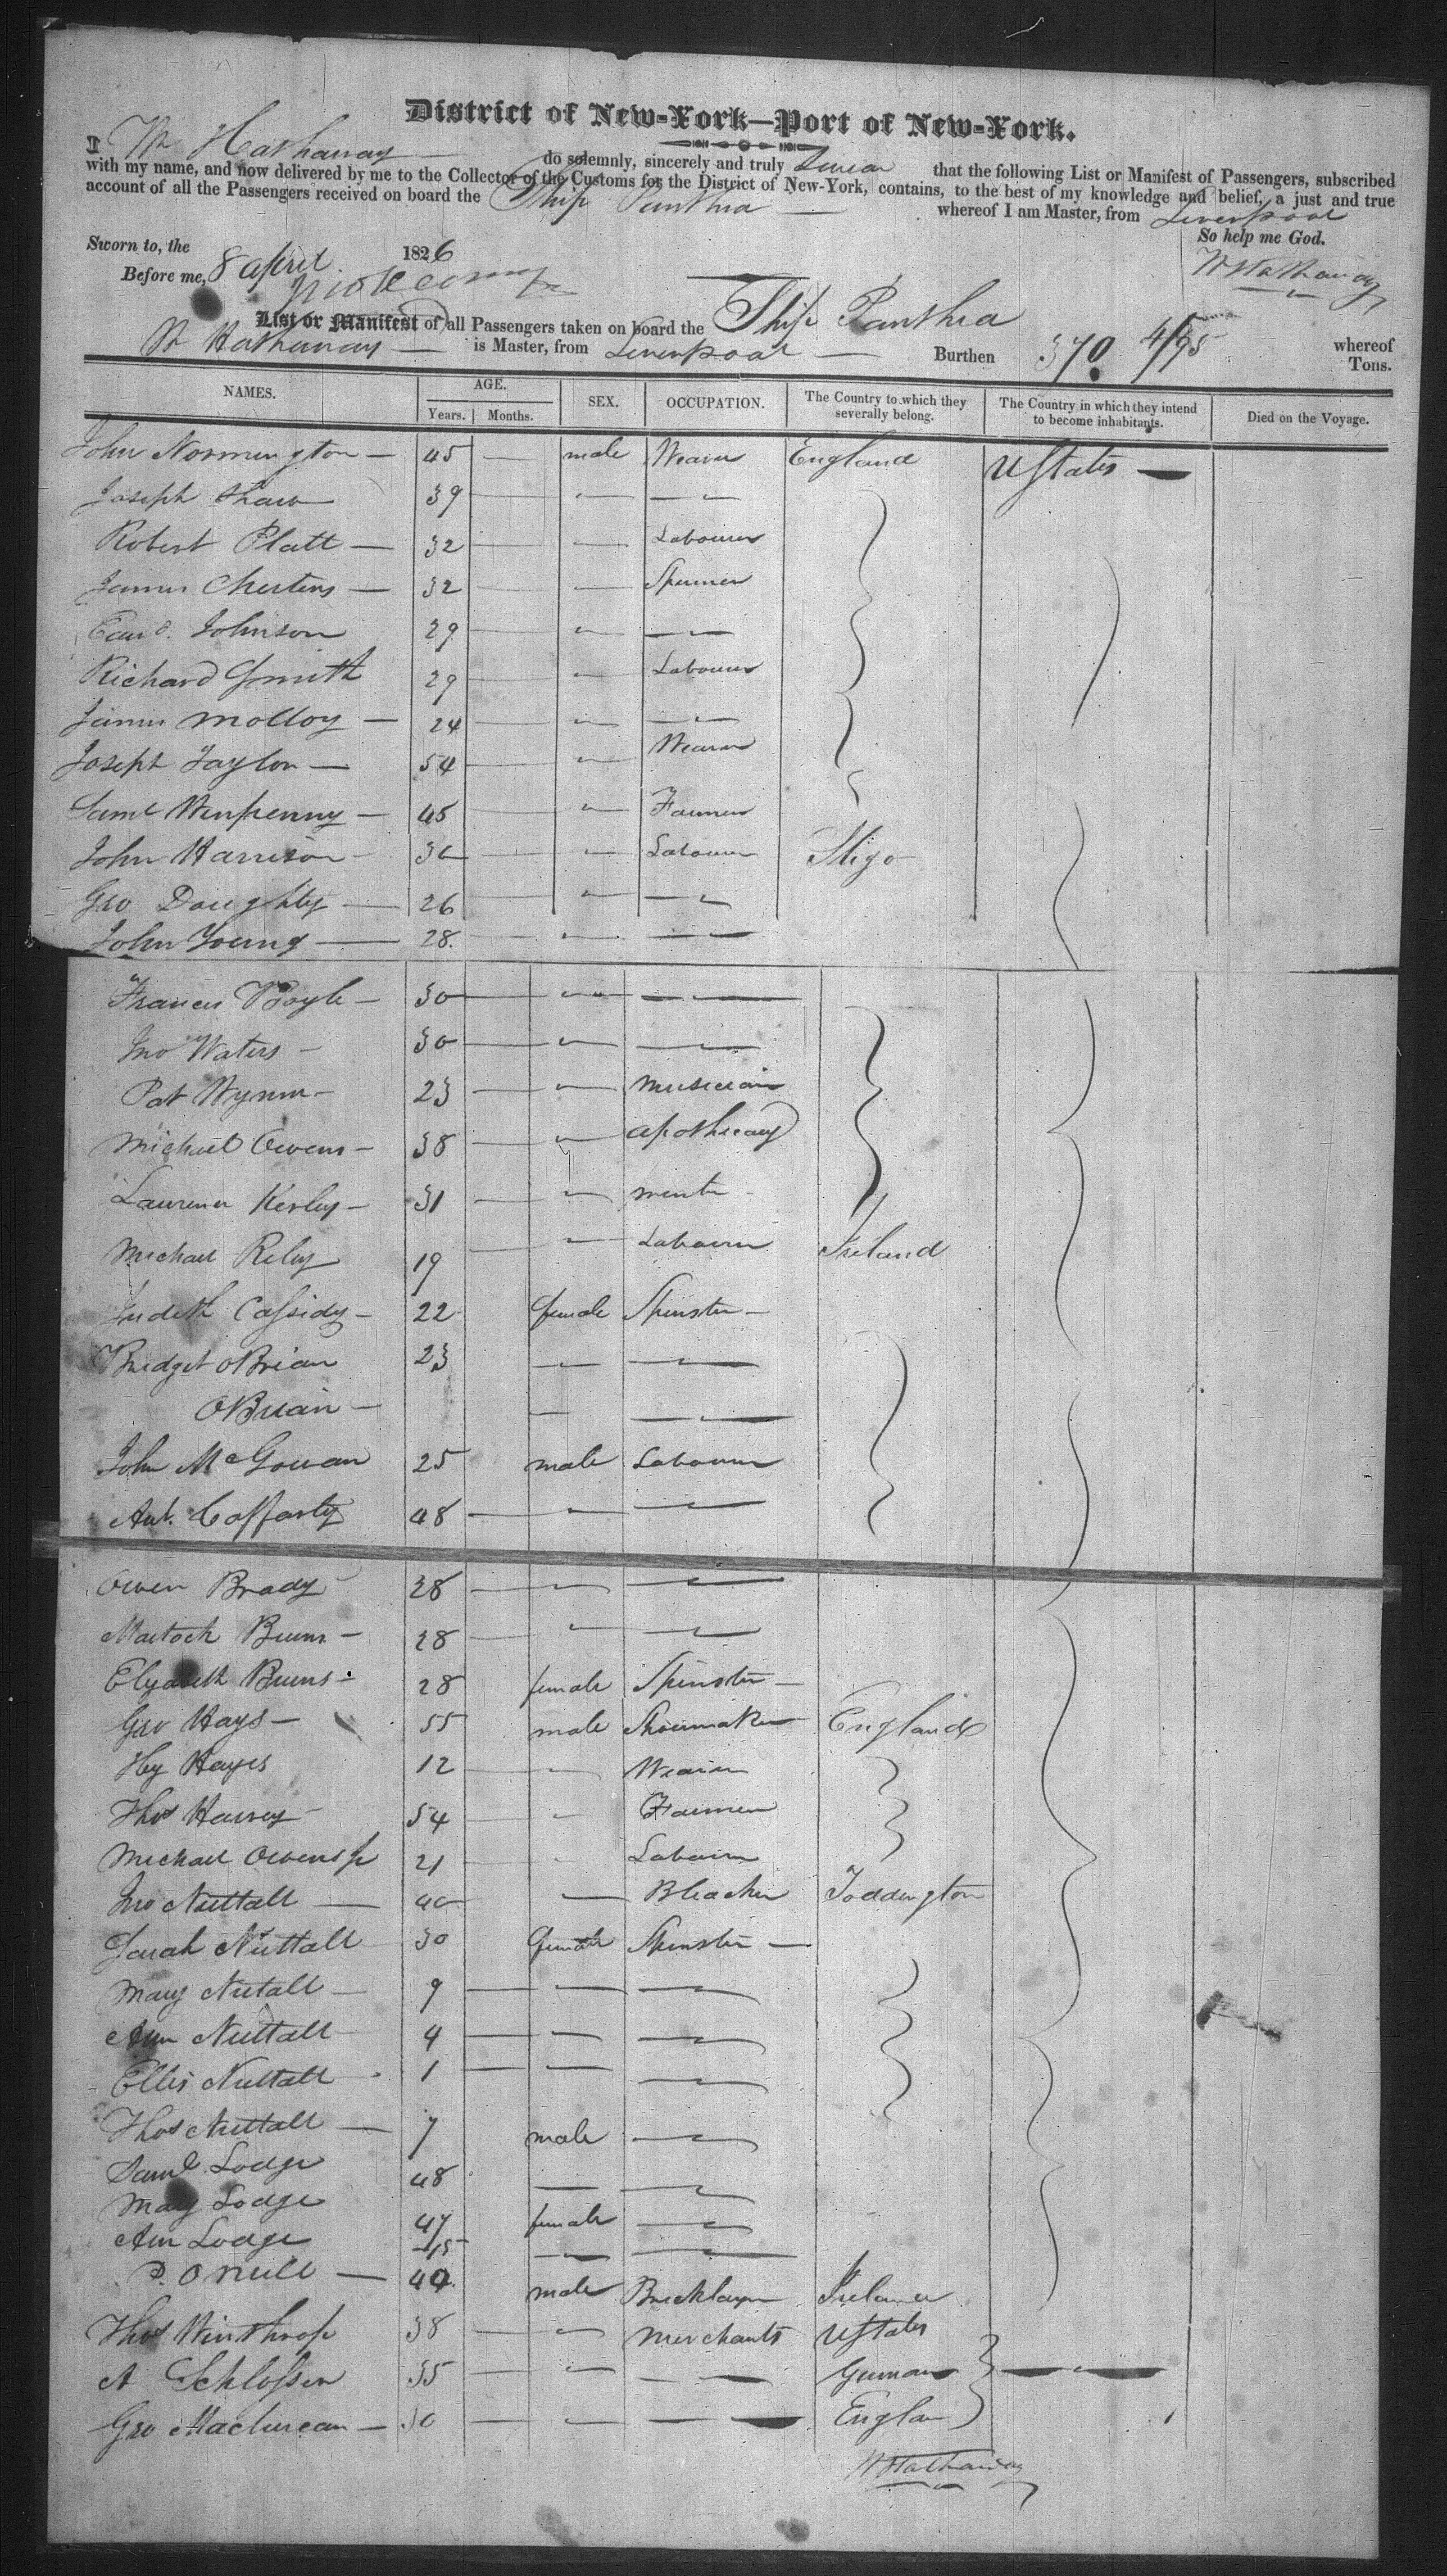 District of New-York—Port of New-York.
I W Hathaway do solemnly, sincerely and truly Swear that the following List or Manifest of Passengers, subscribed
with my name, and now delivered by me to the Collector of the Customs for the District of New-York, contains, to the best of my knowledge and belief, a just and true
account of all the Passengers received on board the Ship Panthea whereof I am Master, from Liverpool
So help me God.
Sworn to, the 8 April 1826
Before me,
W Hathaway
List or Manifest of all Passengers taken on board the Ship Panthea whereof
W Hathaway is Master, from Liverpool Burthen 370 4/95 Tons.
NAMES. AGE. Years. Months. SEX. OCCUPATION. The Country to which they severally belong. The Country in which they intend to become inhabitants. Died on the Voyage.
John Normington 45 male Weaver England UStates
Joseph Shaw 39
Robert Platt 32 Labourer
James 32 Spinner
Edwd. Johnson 29
Richard Smith 29 Labourer
James Molloy 24
Joseph Taylor 54 Weaver
Saml Winpenny 45 Farmer
John Harrison Labourer Sligo
Geo Doughty 26
John Young 28.
Francis Boyle 30
Jno Waters 30
Pat Wynn 23 Musician
Michael Owens 38 apothecary
Laurence Kerley 31
Michael Riley 19 Labourer Ireland
Judith Cassidy 22 female Spinster
Bridget OBrian 23
OBrian
John McGowan 25 male Labourer
Ant. Cafferty 48
Owen Brady 28
Burns 28
Elizabeth Burns 28 female Spinster
Geo Hays 55 male Shoemaker England
Hy Hayes 12 Weaver
Thos Harvey 54 Farmer
Michael Owens 21 Labourer
Jno Nuttall 40 Bleacher Toddington
Sarah Nuttall 30 female Spinster
Mary Nutall 9
Ann Nuttall 4
Ellis Nuttall 1
Thos Nuttall 7 male
Saml Lodge 48
Mary Lodge 47 female
Ann Lodge 15
P. ONeill 44 male Bricklayer Ireland
Thos Winthrop 38 Merchants UStates
A Schlosser 35 German
Geo Maclurean 30 Englan
W Hathaway